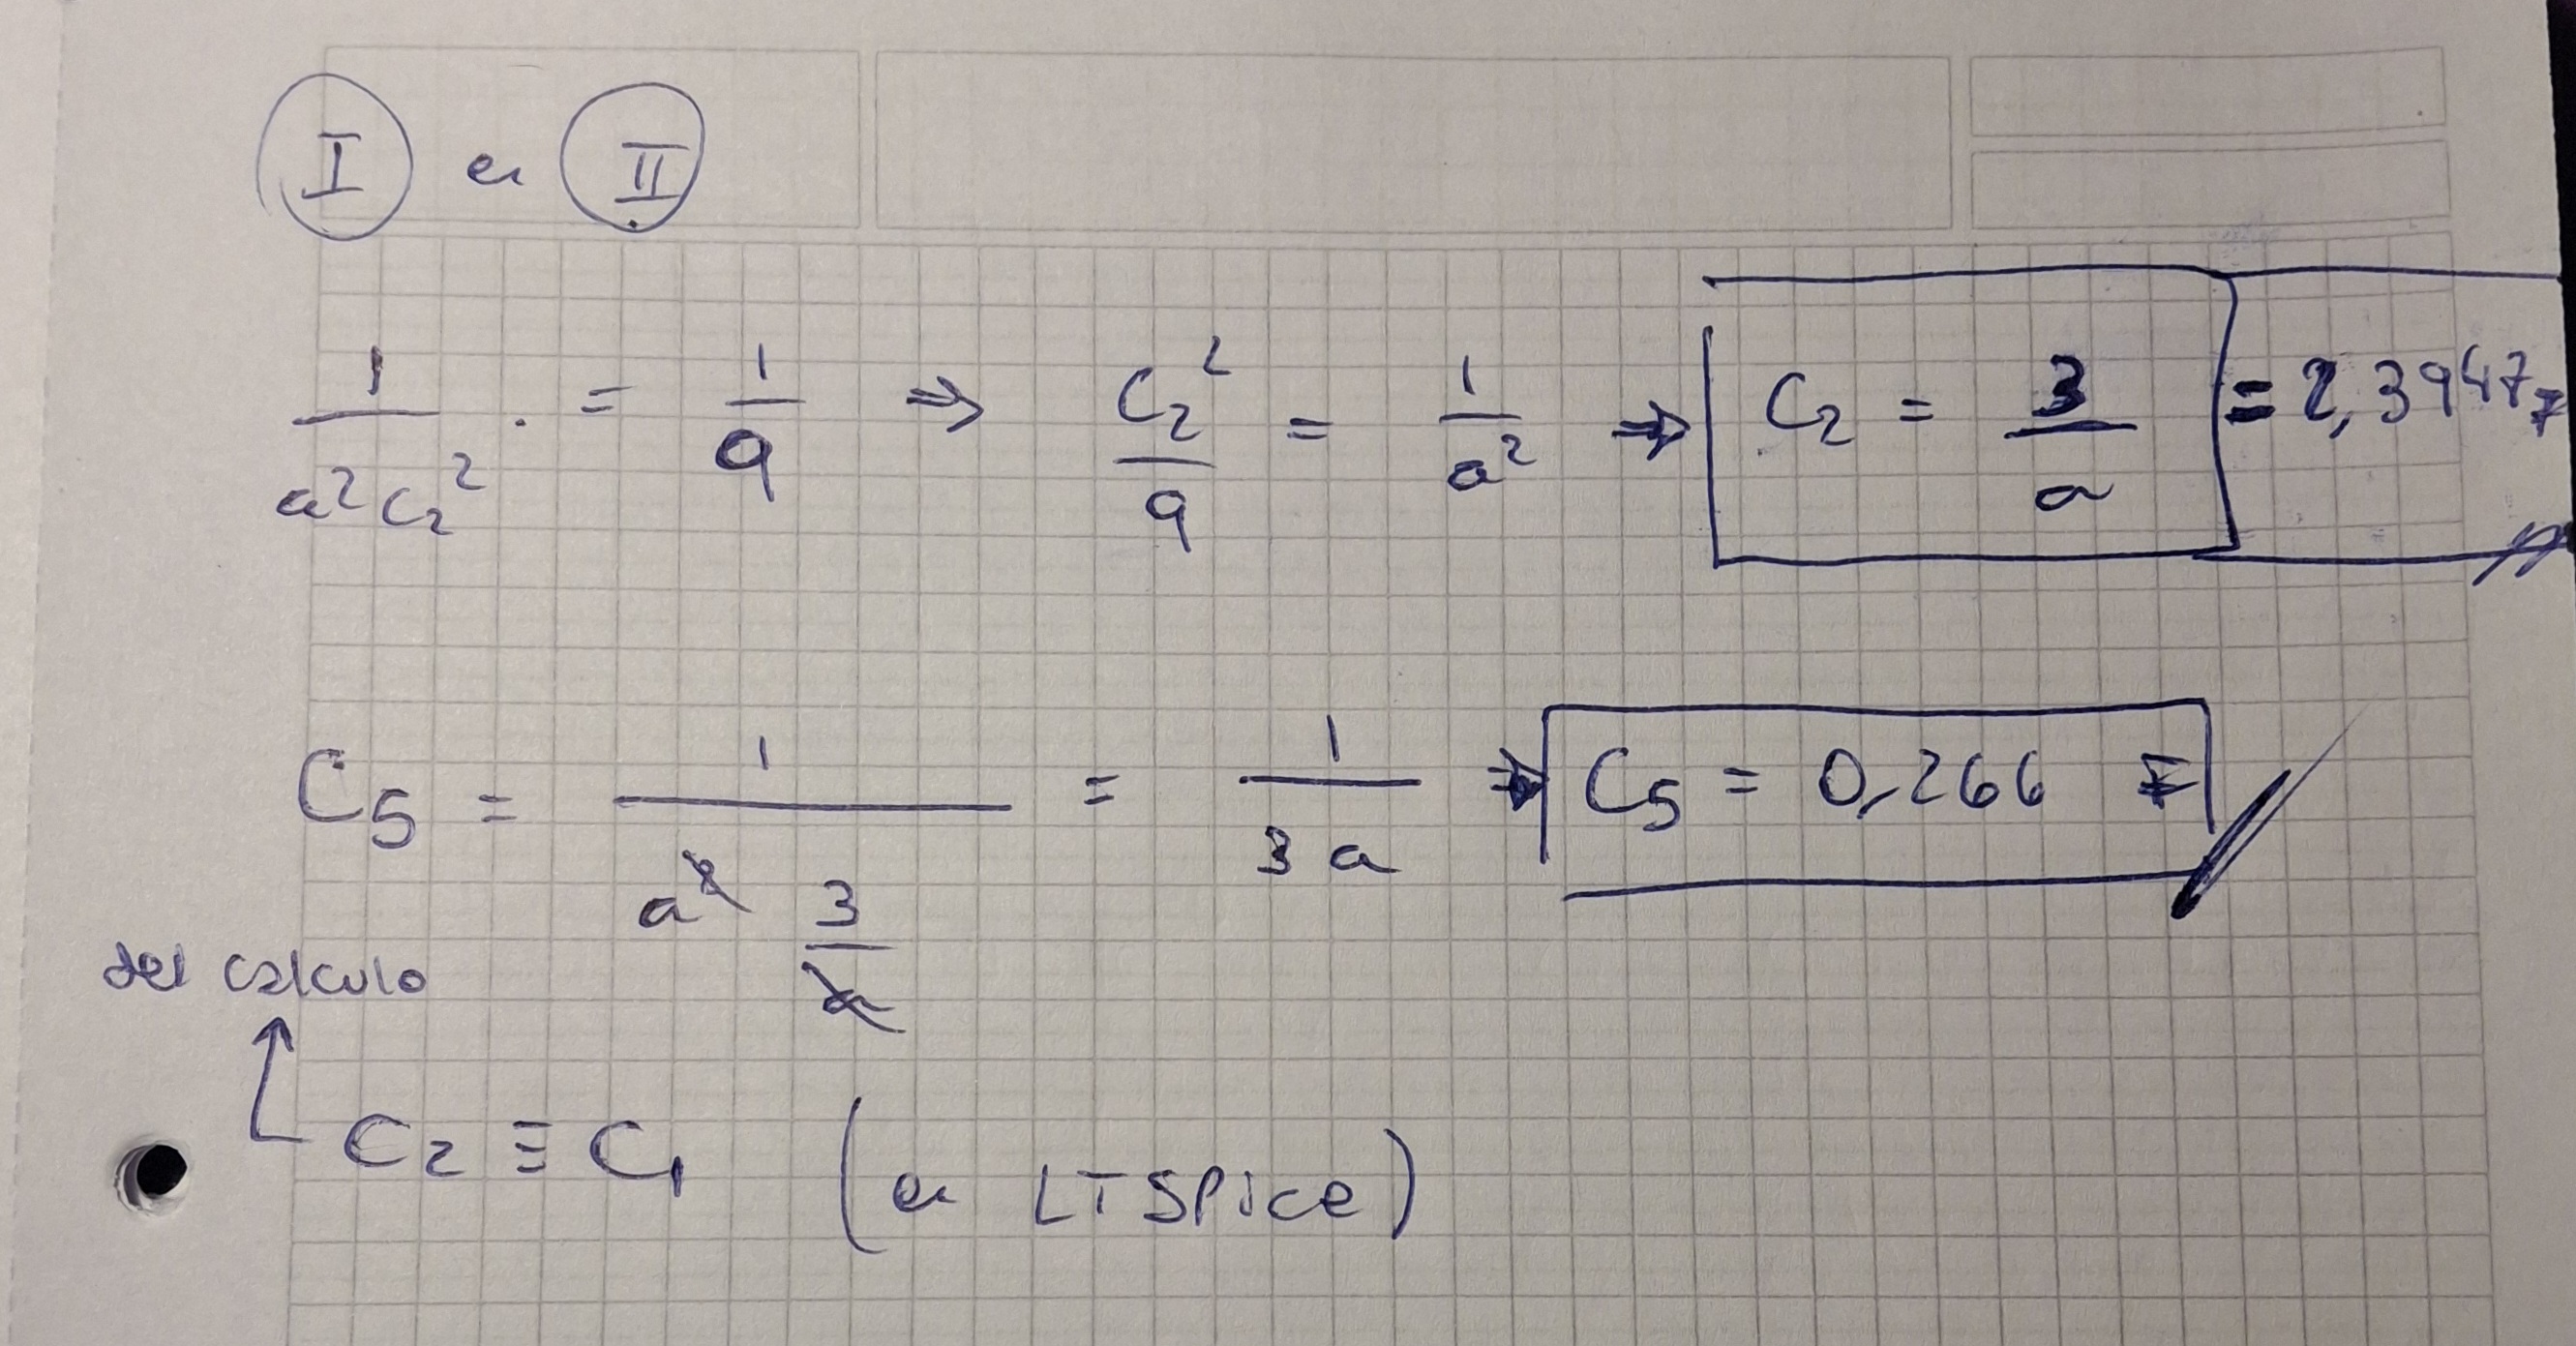 I en II
1/(a² C₂²) · = 1/9 ⇒ C₂²/9 = 1/a² ⇒ C₂ = 3/a = 2,3947 F
C₅ = 1/(a² 3/a) = 1/(3a) ⇒ C₅ = 0,266 F
del calculo
C₂ ≡ C₁ (en LTSPice)